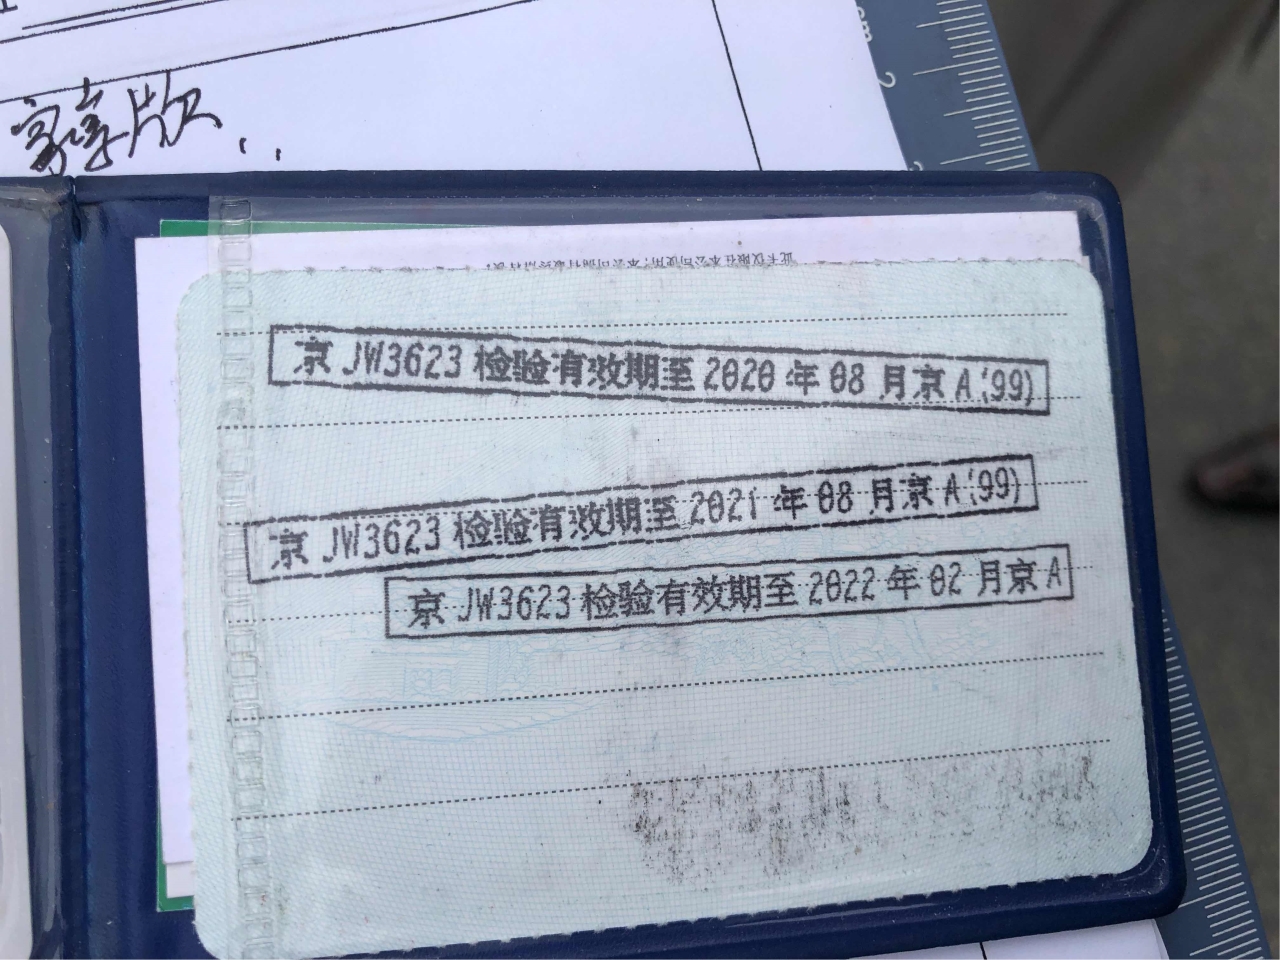 cm
2
京 JW3623 检验有效期至 2020 年 08 月京 A (99)
京 JW3623 检验有效期至 2021 年 08 月京 A (99)
京 JW3623 检验有效期至 2022 年 02 月京 A